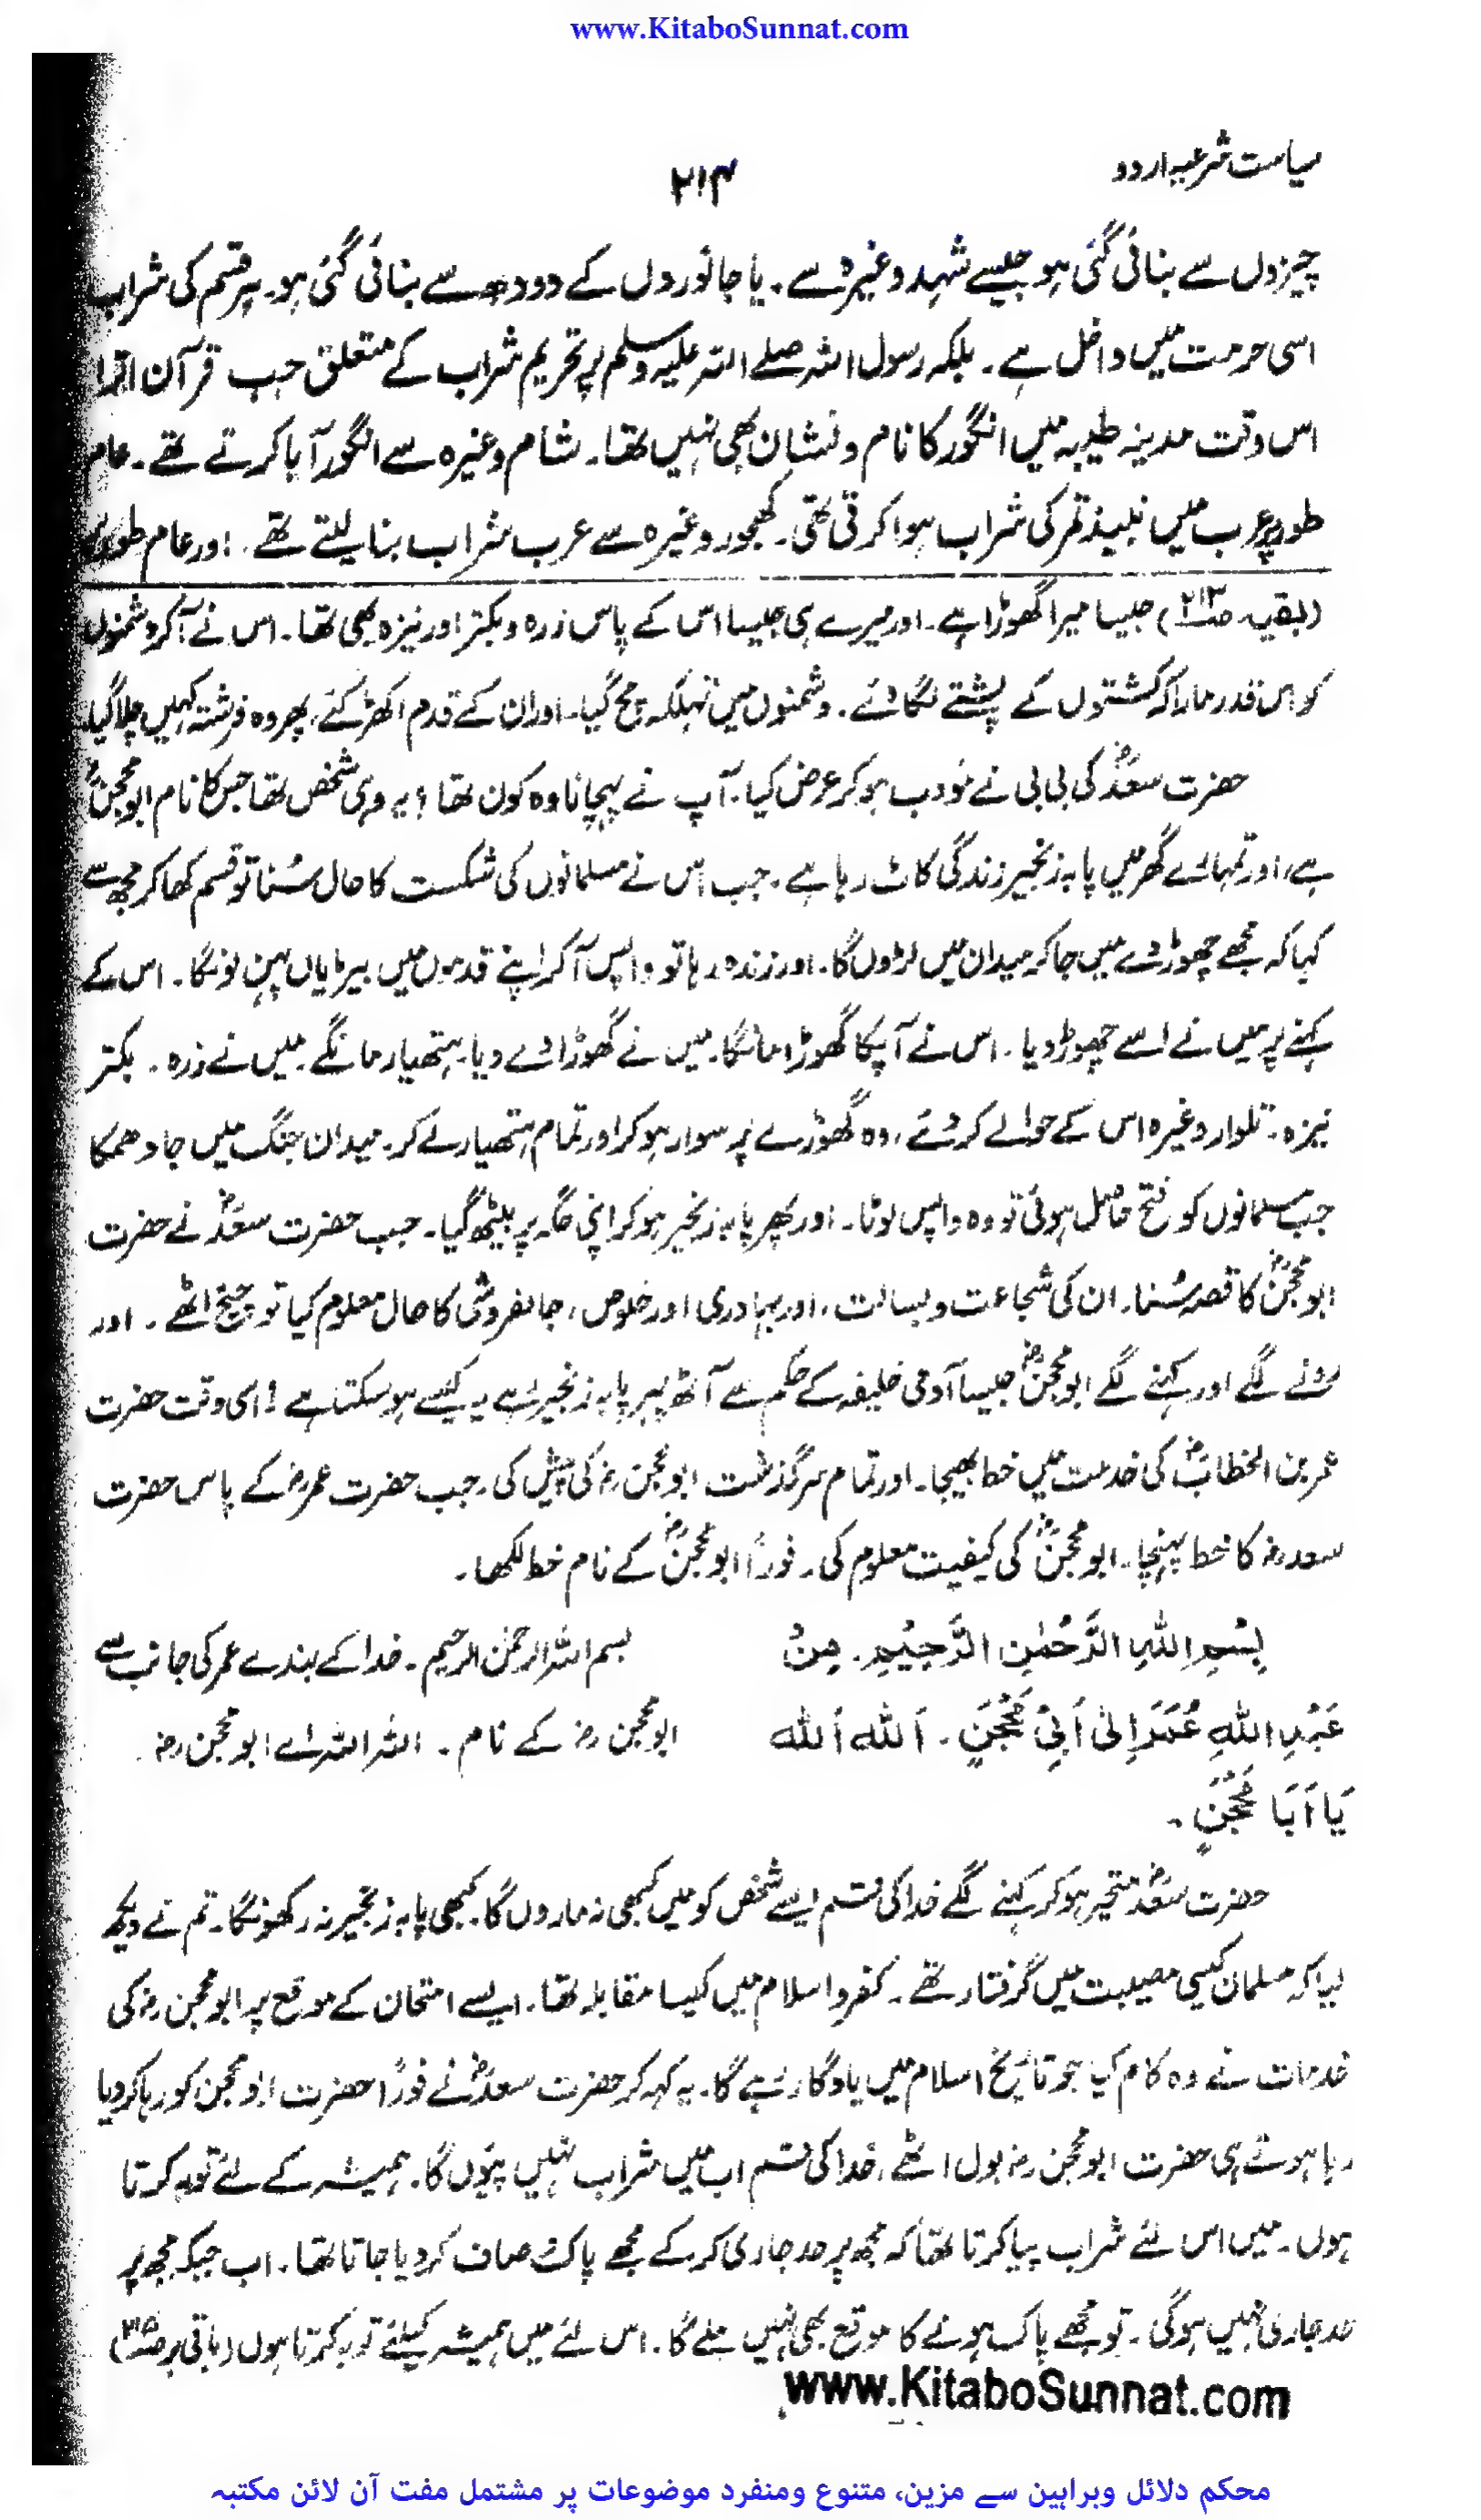 www.KitaboSunnat.com
سیاست شرعیہ اردو
۲۱۴
چیزوں سے بنائی گئی ہو جیسے شہد وغیرہ سے۔ یا جانوروں کے دودھ سے بنائی گئی ہو۔ ہر قسم کی شراب
اسی حرمت میں داخل ہے۔ بلکہ رسول اللہ صلے اللہ علیہ وسلم پر تحریم شراب کے متعلق جب قرآن اترا
اس وقت مدینہ طیبہ میں انگور کا نام و نشان بھی نہیں تھا۔ شام وغیرہ سے انگور آیا کرتے تھے۔ عام
طور پر عرب میں نبیذ تمر کی شراب ہوا کرتی تھی۔ کھجور وغیرہ سے عرب شراب بنا لیتے تھے۔ اور عام طور پر
(بقیہ صـ۲۱۳) جیسا میرا گھوڑا ہے۔ اور میرے ہی جیسا اس کے پاس زرہ و بکتر اور نیزہ بھی تھا۔ اس نے آکر دشمنوں
کو اس قدر مارا کہ کشتوں کے پشتے لگا دئے۔ دشمنوں میں تہلکہ مچ گیا۔ اور ان کے قدم اکھڑ گئے، پھر وہ فرشتہ کہیں چلا گیا۔
حضرت سعدؓ کی بی بی نے مؤدب ہو کر عرض کیا۔ آپ نے پہچانا وہ کون تھا؟ یہ وہی شخص تھا جس کا نام ابو محجنؓ
ہے، اور تمہارے گھر میں پابہ زنجیر زندگی کاٹ رہا ہے۔ جب اس نے مسلمانوں کی شکست کا حال سُنا تو قسم کھا کر مجھ سے
کہا کہ مجھے چھوڑ دے میں جا کر میدان میں لڑوں گا۔ اور زندہ رہا تو واپس آکر اپنے قدموں میں بیڑیاں پہن لونگا۔ اس کے
کہنے پر میں نے اسے چھوڑ دیا۔ اس نے آپکا گھوڑا مانگا۔ میں نے گھوڑا دے دیا۔ ہتھیار مانگے۔ میں نے زرہ۔ بکتر
نیزہ۔ تلوار وغیرہ اس کے حوالے کر دئے، وہ گھوڑے پر سوار ہو کر اور تمام ہتھیار لے کر۔ میدان جنگ میں جا دھمکا
جب مسلمانوں کو فتح حاصل ہوئی تو وہ واپس لوٹا۔ اور پھر پابہ زنجیر ہو کر اپنی جگہ پر بیٹھ گیا۔ جب حضرت سعدؓ نے حضرت
ابو محجنؓ کا قصہ سُنا۔ ان کی شجاعت و بسالت، اور بہادری اور خلوص، جانفروشی کا حال معلوم کیا تو چیخ اٹھے۔ اور
رونے لگے اور کہنے لگے ابو محجنؓ جیسا آدمی خلیفہ کے حکم سے آٹھ پہر پابہ زنجیر رہے یہ کیسے ہو سکتا ہے! اسی وقت حضرت
عمر بن الخطابؓ کی خدمت میں خط بھیجا۔ اور تمام سرگذشت ابو محجن رضہ کی پیش کی۔ جب حضرت عمر رضہ کے پاس حضرت
سعد رضہ کا خط پہنچا۔ ابو محجنؓ کی کیفیت معلوم کی۔ فوراً ابو محجنؓ کے نام خط لکھا۔
بِسْمِ اللّٰهِ الرَّحْمٰنِ الرَّحِيْمِ۔ مِنْ
بسم اللہ الرحمٰن الرحیم۔ خدا کے بندے عمر کی جانب سے
عَبْدِ اللّٰهِ عُمَرَ اِلٰى اَبِىْ مَحْجَنٍ۔ اَللّٰه اَللّٰه
ابو محجن رضہ کے نام۔ اللہ اللہ اے ابو محجن رضہ۔
يَا اَبَا مَحْجَنٍ۔
حضرت سعدؓ متحیر ہو کر کہنے لگے خدا کی قسم ایسے شخص کو میں کبھی نہ ماروں گا۔ کبھی پابہ زنجیر نہ رکھونگا۔ تم نے دیکھ
لیا کہ مسلمان کیسی مصیبت میں گرفتار تھے۔ کفر و اسلام میں کیسا مقابلہ تھا۔ ایسے امتحان کے موقع پر ابو محجن رضہ کی
خدمات نے وہ کام کیا جو تاریخ اسلام میں یادگار رہے گا۔ یہ کہہ کر حضرت سعدؓ نے فوراً حضرت ابو محجن کو رہا کر دیا
رہا ہوتے ہی حضرت ابو محجن رضہ بول اٹھے، خدا کی قسم اب میں شراب نہیں پیؤں گا۔ ہمیشہ کے لئے توبہ کرتا
ہوں۔ میں اس لئے شراب پیا کرتا تھا کہ مجھ پر حد جاری کر کے مجھے پاک صاف کر دیا جاتا تھا۔ اب جبکہ مجھ پر
حد جاری نہیں ہوگی۔ تو مجھے پاک ہونے کا موقع بھی نہیں ملے گا۔ اس لئے میں ہمیشہ کیلئے توبہ کرتا ہوں (باقی بر صـ۲۱۵)
www.KitaboSunnat.com
محکم دلائل وبراہین سے مزین، متنوع ومنفرد موضوعات پر مشتمل مفت آن لائن مکتبہ